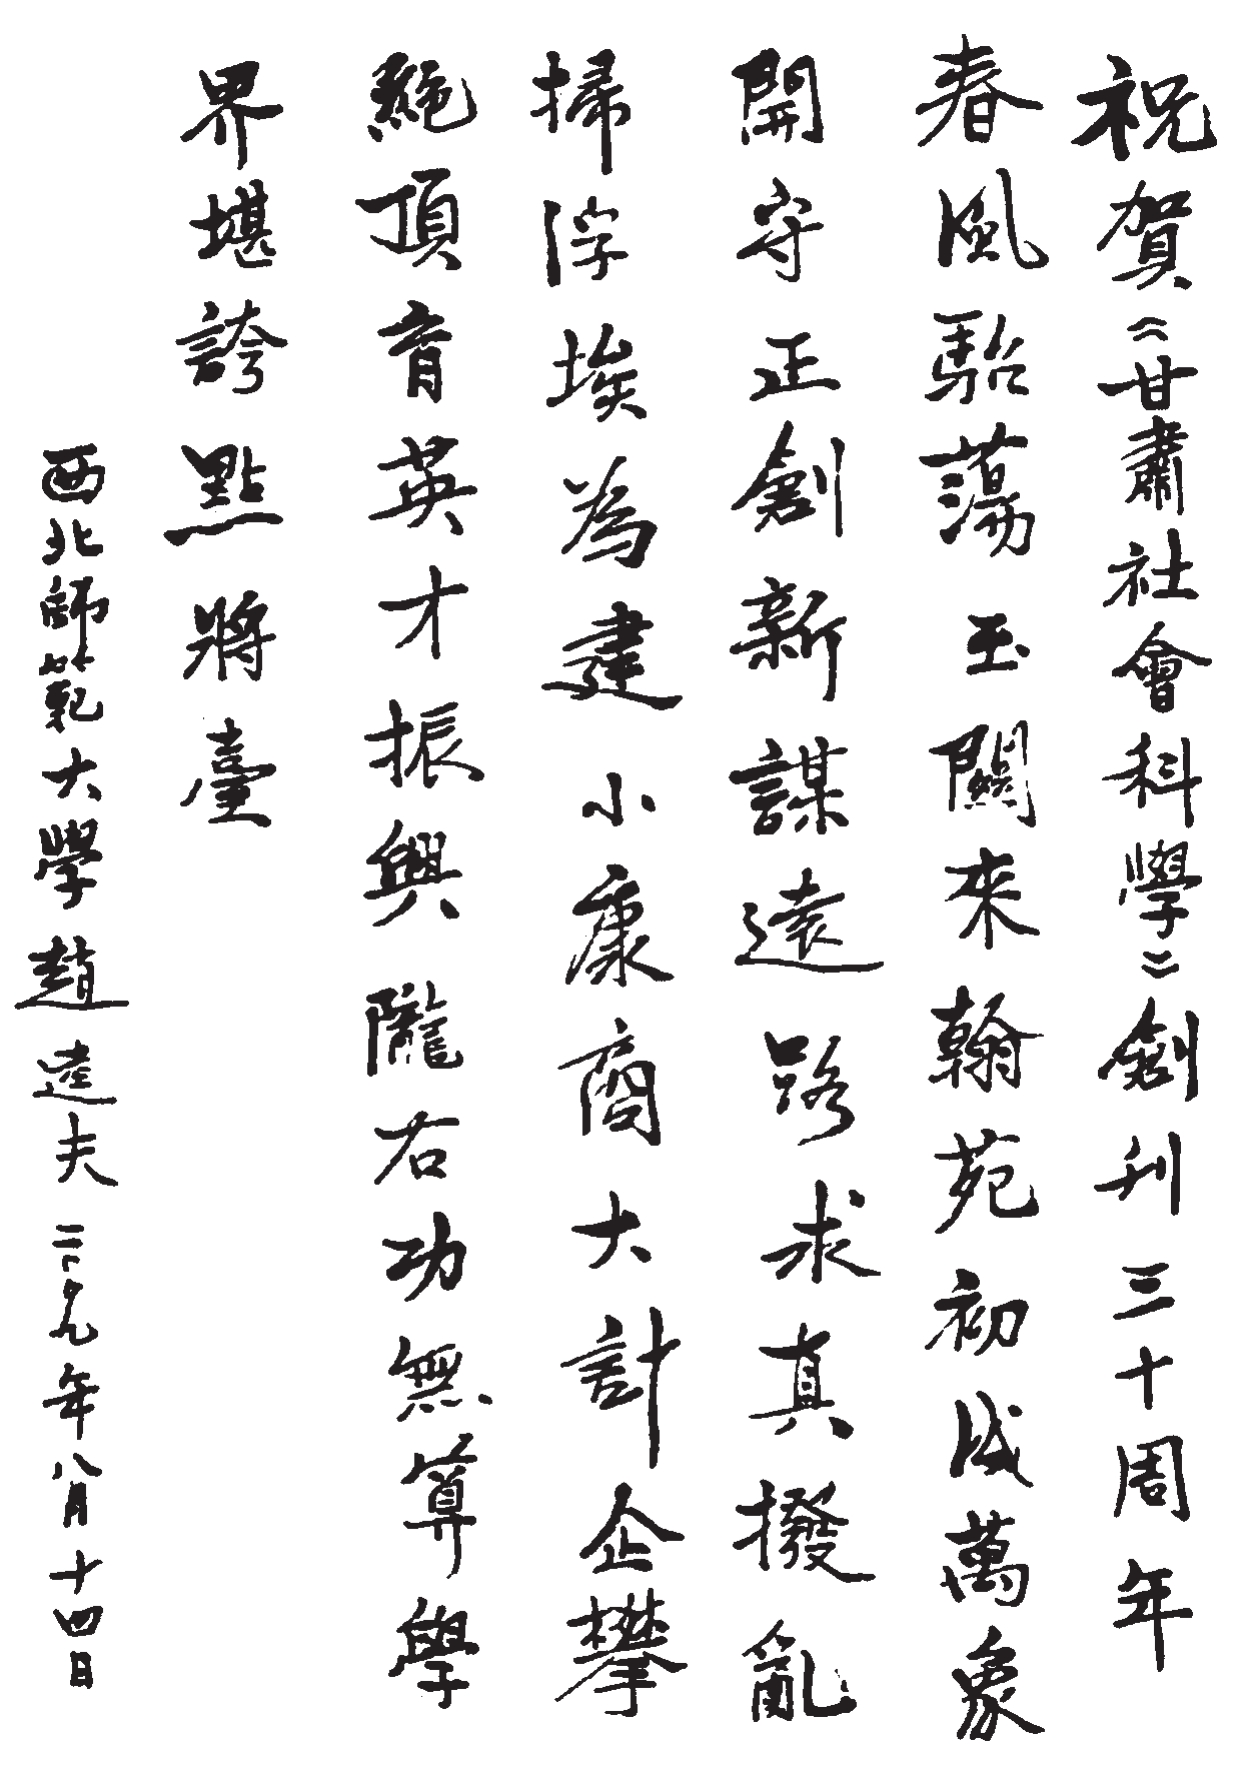 祝賀《甘肅社會科學》創刊三十周年
春風駘蕩玉關來翰苑初成萬象
開守正創新謀遠路求真撥亂
掃浮埃為建小康商大計企攀
絕頂育英才振興隴右功無算學
界堪誇點將臺
西北師範大學趙逵夫二〇〇九年八月十四日